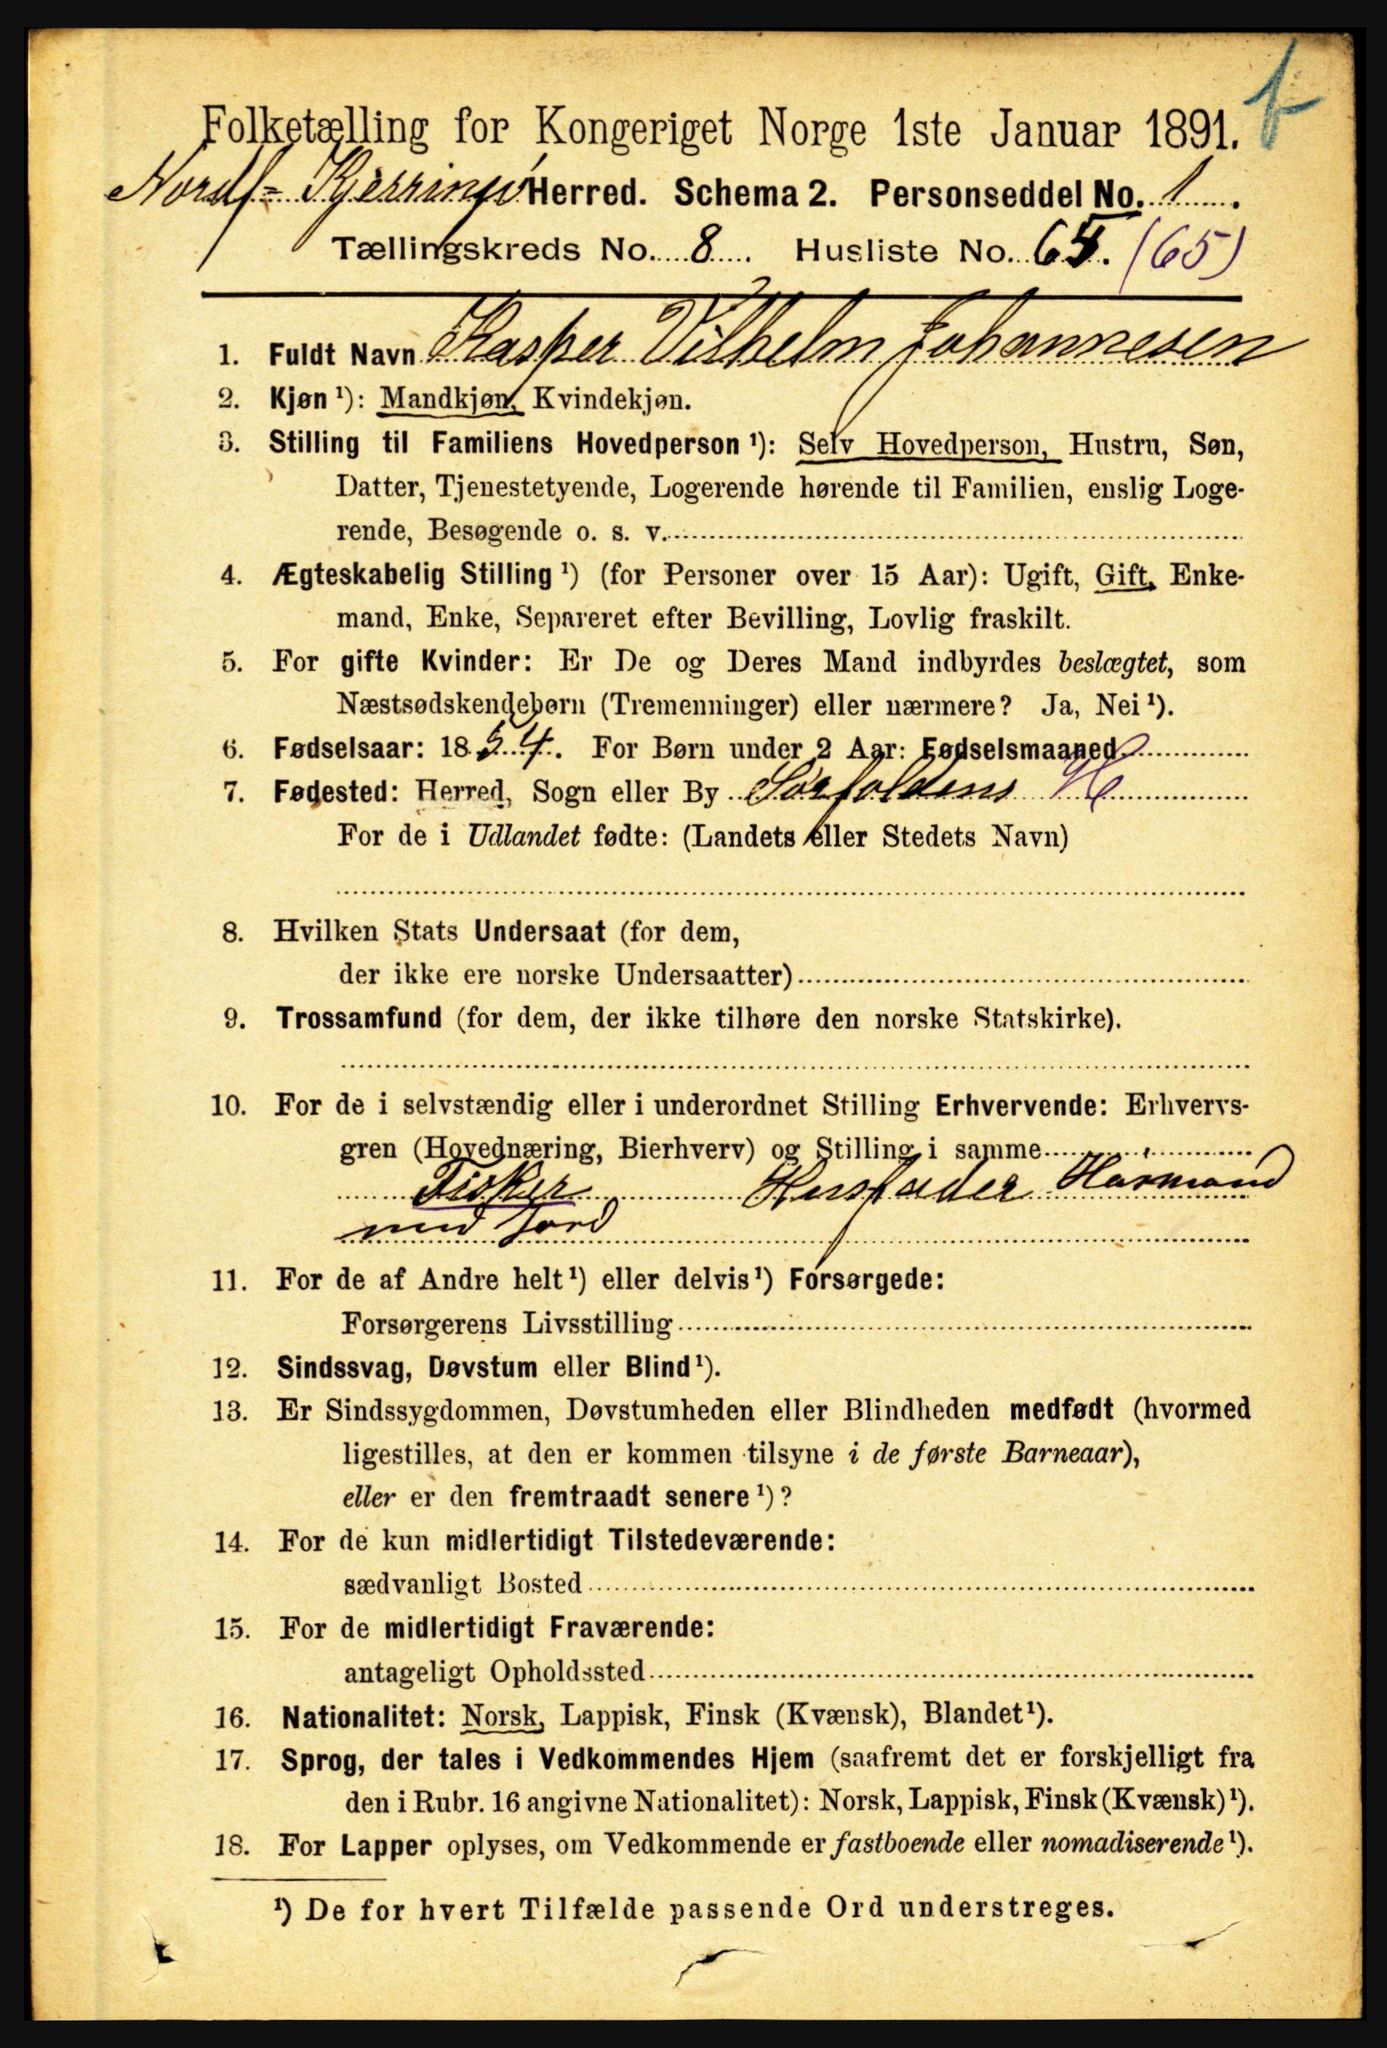 Folketælling for Kongeriget Norge 1ste Januar 1891.
Nordf= Kjerringø Herred. Schema 2. Personseddel No. 1.
Tællingskreds No. 8. Husliste No. 65. (65)
1. Fuldt Navn Kasper Vilhelm Johannesen
2. Kjøn ¹): Mandkjøn, Kvindekjøn.
3. Stilling til Familiens Hovedperson ¹): Selv Hovedperson, Hustru, Søn,
Datter, Tjenestetyende, Logerende hørende til Familien, enslig Loge-
rende, Besøgende o. s. v.
4. Ægteskabelig Stilling ¹) (for Personer over 15 Aar): Ugift, Gift, Enke-
mand, Enke, Separeret efter Bevilling, Lovlig fraskilt.
5. For gifte Kvinder: Er De og Deres Mand indbyrdes beslægtet, som
Næstsødskendebørn (Tremenninger) eller nærmere? Ja, Nei ¹).
6. Fødselsaar: 1854. For Børn under 2 Aar: Fødselsmaaned
7. Fødested: Herred, Sogn eller By Sørfoldens H
For de i Udlandet fødte: (Landets eller Stedets Navn)
8. Hvilken Stats Undersaat (for dem,
der ikke ere norske Undersaatter)
9. Trossamfund (for dem, der ikke tilhøre den norske Statskirke).
10. For de i selvstændig eller i underordnet Stilling Erhvervende: Erhvervs-
gren (Hovednæring, Bierhverv) og Stilling i samme
Fisker Husfader Husmand
med Jord
11. For de af Andre helt ¹) eller delvis ¹) Forsørgede:
Forsørgerens Livsstilling
12. Sindssvag, Døvstum eller Blind ¹).
13. Er Sindssygdommen, Døvstumheden eller Blindheden medfødt (hvormed
ligestilles, at den er kommen tilsyne i de første Barneaar),
eller er den fremtraadt senere ¹)?
14. For de kun midlertidigt Tilstedeværende:
sædvanligt Bosted
15. For de midlertidigt Fraværende:
antageligt Opholdssted
16. Nationalitet: Norsk, Lappisk, Finsk (Kvænsk), Blandet ¹).
17. Sprog, der tales i Vedkommendes Hjem (saafremt det er forskjelligt fra
den i Rubr. 16 angivne Nationalitet): Norsk, Lappisk, Finsk (Kvænsk) ¹).
18. For Lapper oplyses, om Vedkommende er fastboende eller nomadiserende ¹).
¹) De for hvert Tilfælde passende Ord understreges.